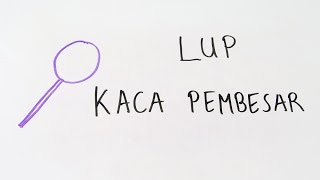 LUP
KACA PEMBESAR